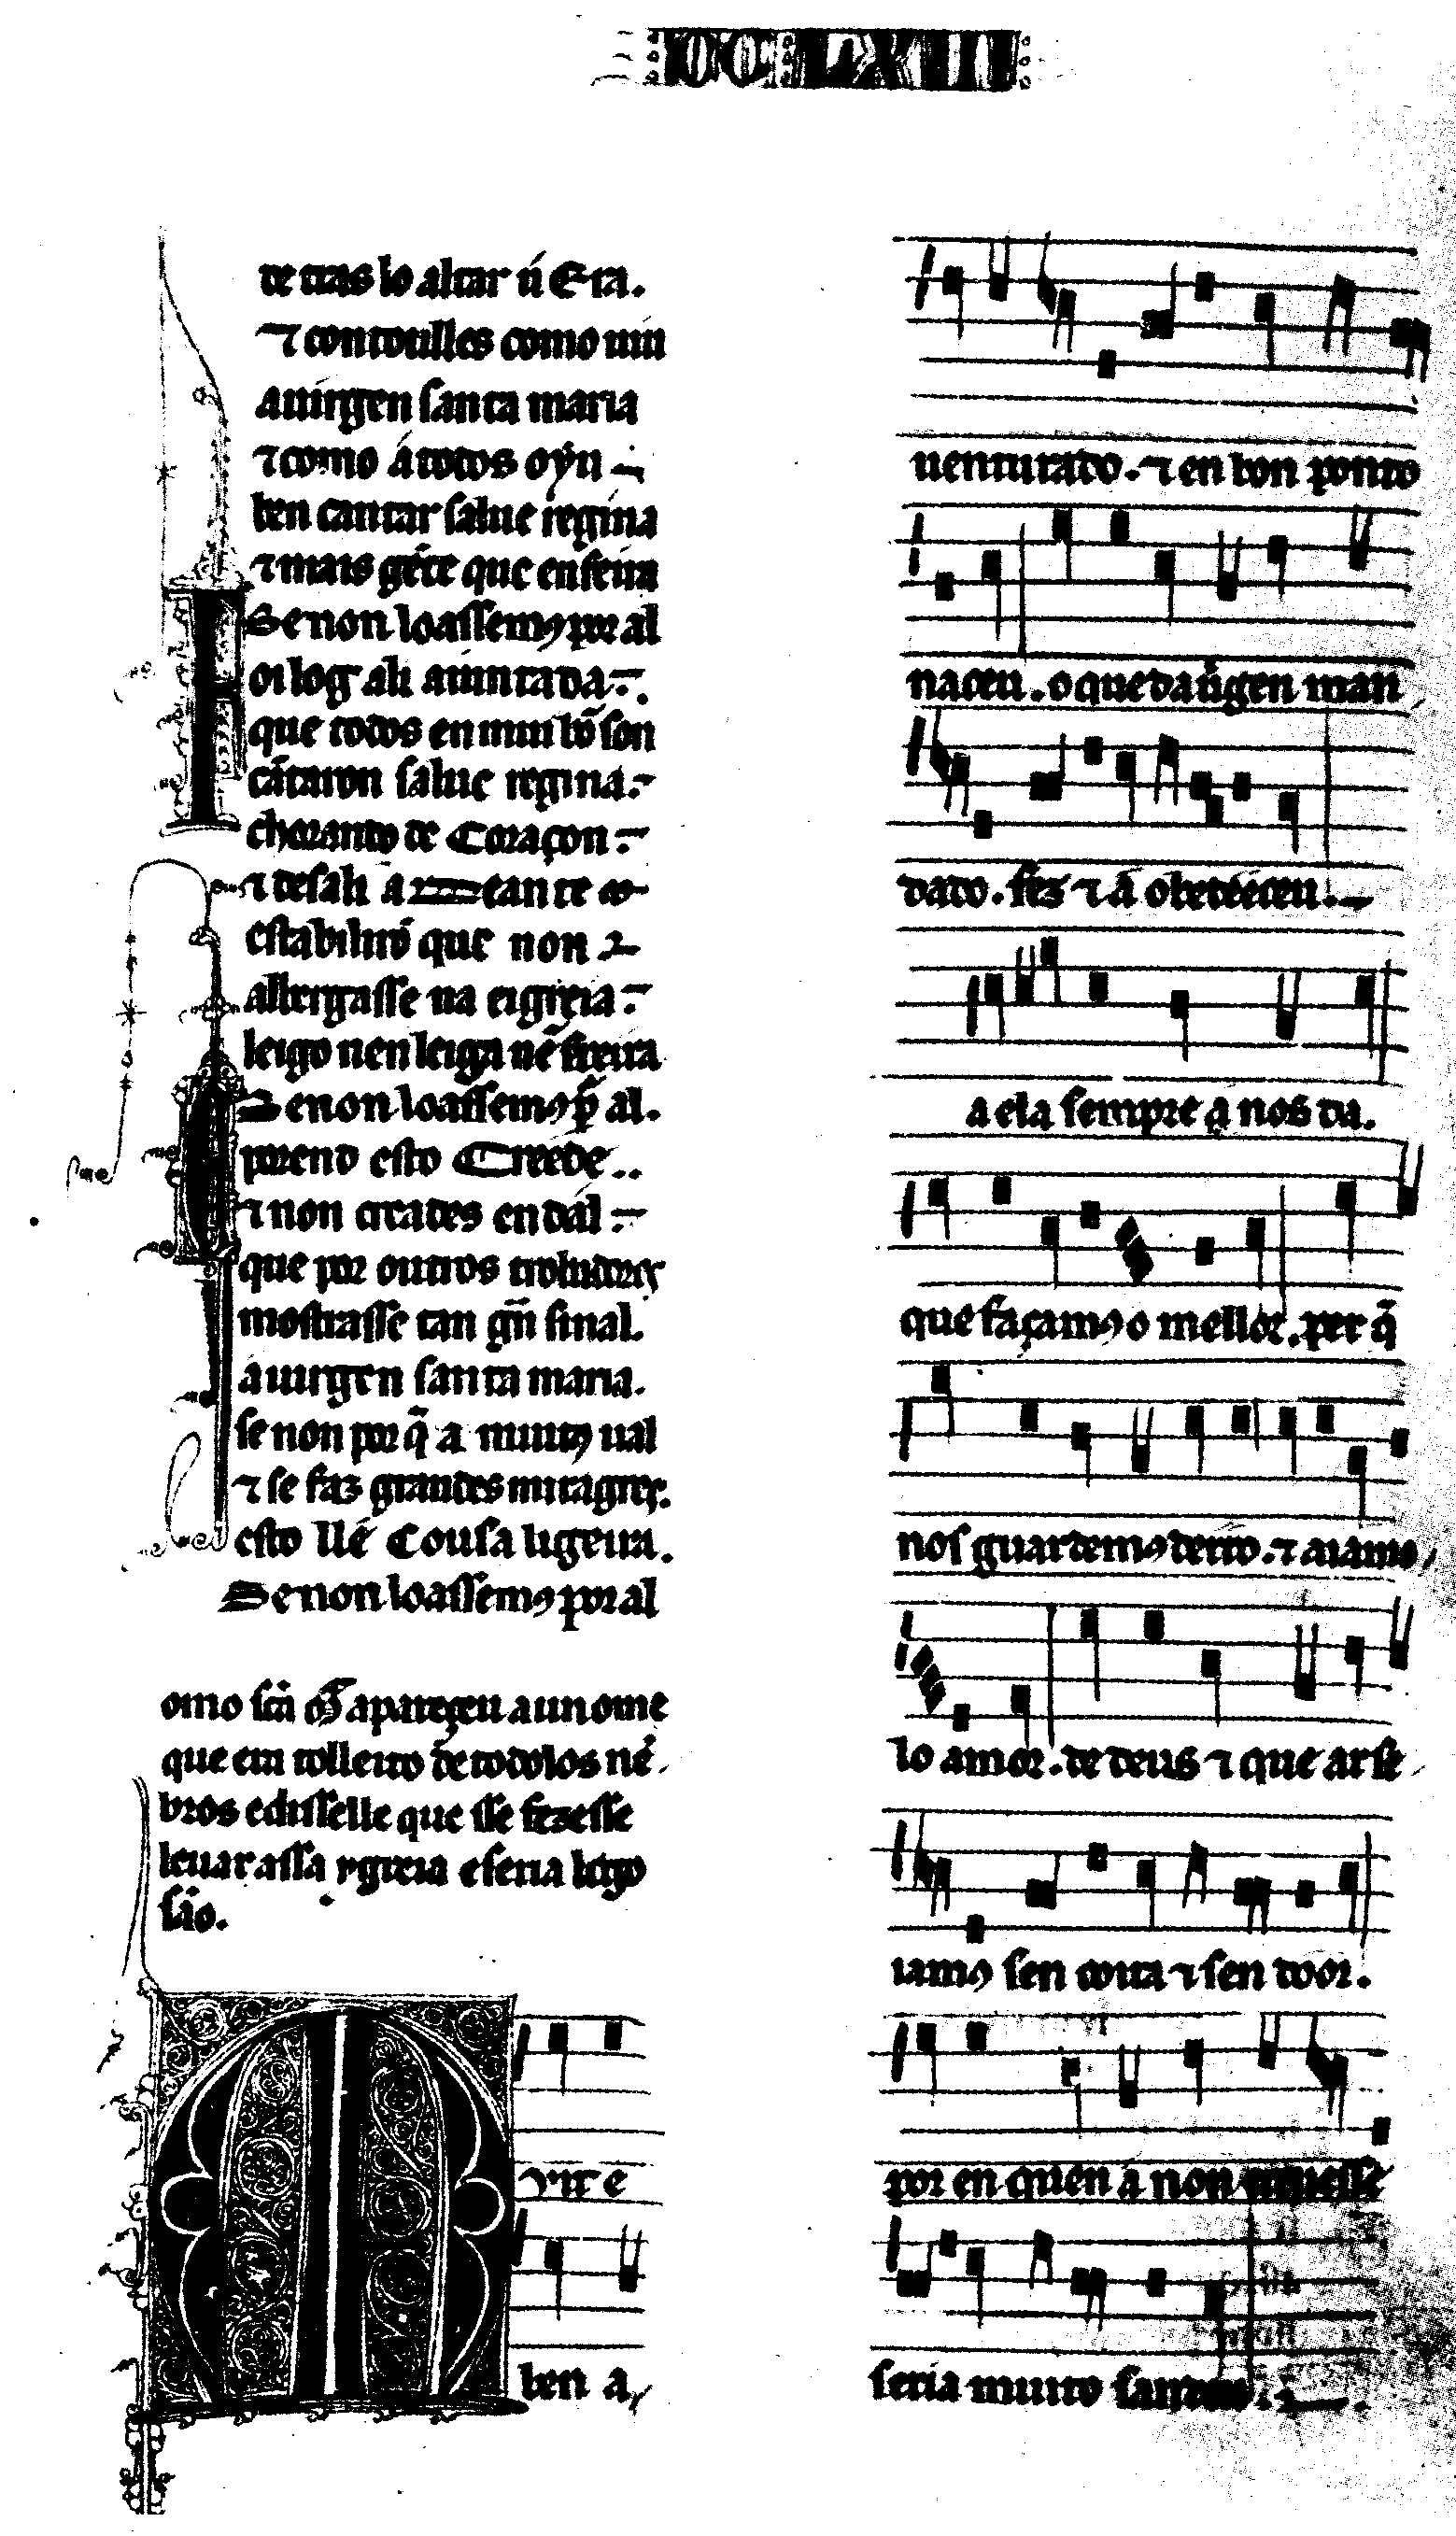 CCLXII
de tras lo altar ú Era.
⁊ contoulles como uiu
a uirgen santa maria
⁊ como á todos oyu
ben cantar salue regina
⁊ mais gẽte que enferma
Se non loassemꝯ por al
oi log ali aiuntada
que todos en mui bõ son
cãtaron salue regina.
chorando de Coraçon
⁊ desali a deante
estabiliró que non
albergasse na eigreia
leigo nen leiga nẽ freira
Se non loassemꝯ pͬ al.
porend esto Creede..
⁊ non creades en dal
que por outros trobadores
mostrasse tan gñ sinal.
a uirgen santa maria.
se non por q̃ a muitꝯ ual
⁊ se faz grandes miragres.
esto lle é Cousa ligeira.
Se non loassemꝯ por al
omo scã Mͣ apareçeu a un ome
que era tolleito de todolos nẽ
bros e disselle que sse fezesse
leuar a ssa ygreia e seria logo
são.
Muit e
ben a
uenturado. ⁊ en bon ponto
naceu. o que da uirgen man
dado. fez ⁊ a obedeeceu.
a ela sempre q̃ nos da.
que façamꝯ o mellor. per q̃
nos guardemꝯ derro. ⁊ aiamo
lo amor. de deus ⁊ que arse
iamꝯ sen coita ⁊ sen door.
por en quen á non
seria muito